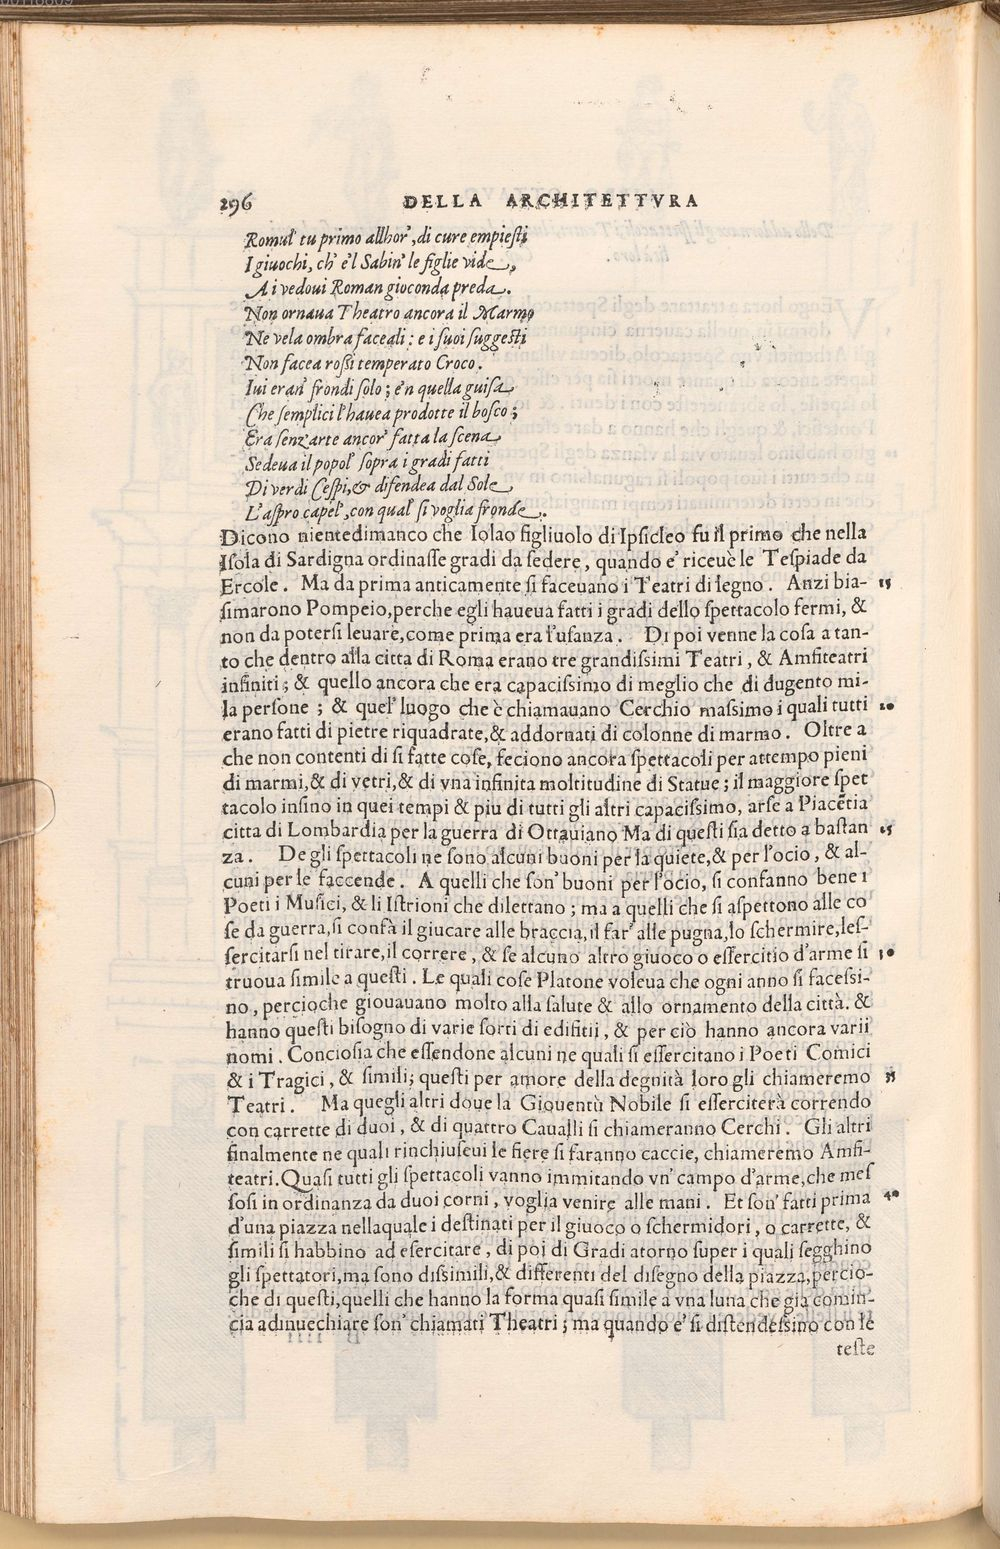 296 DELLA ARCHITETTVRA
Romul' tu primo allhor', di cure empiesti
I giuochi, ch' e'l Sabin' le figlie vide,
A i vedoui Roman gioconda preda.
Non ornaua Theatro ancora il Marmo
Ne vela ombra faceali : e i suoi suggesti
Non facea rossi temperato Croco.
Iui eran' frondi solo ; e'n quella guisa
Che semplici l'hauea prodotte il bosco ;
Era senz'arte ancor' fatta la scena
Sedeua il popol' sopra i gradi fatti
Di verdi Cespi, & difendea dal Sole
L'aspro capel', con qual' si voglia fronde.
Dicono nientedimanco che Iolao figliuolo di Ipsicleo fu il primo che nella
Isola di Sardigna ordinasse gradi da sedere, quando e' riceuè le Tespiade da
Ercole. Ma da prima anticamente si faceuano i Teatri di legno. Anzi bia- 15
simarono Pompeio, perche egli haueua fatti i gradi dello spettacolo fermi, &
non da potersi leuare, come prima era l'usanza. Di poi venne la cosa a tan-
to che dentro alla citta di Roma erano tre grandissimi Teatri, & Amfiteatri
infiniti ; & quello ancora che era capacissimo di meglio che di dugento mi-
la persone ; & quel' luogo che è chiamauano Cerchio massimo i quali tutti 20
erano fatti di pietre riquadrate, & addornati di colonne di marmo. Oltre a
che non contenti di si fatte cose, feciono ancora spettacoli per attempo pieni
di marmi, & di vetri, & di vna infinita moltitudine di Statue ; il maggiore spet
tacolo insino in quei tempi & piu di tutti gli altri capacissimo, arse a Piacẽtia
citta di Lombardia per la guerra di Ottauiano Ma di questi sia detto a bastan 25
za. De gli spettacoli ne sono alcuni buoni per la quiete, & per l'ocio, & al-
cuni per le faccende. A quelli che son' buoni per l'ocio, si confanno bene i
Poeti i Musici, & li Istrioni che dilettano ; ma a quelli che si aspettono alle co
se da guerra, si confà il giucare alle braccia, il far' alle pugna, lo schermire, les-
sercitarsi nel tirare, il correre, & se alcuno altro giuoco o essercitio d'arme si 30
truoua simile a questi. Le quali cose Platone voleua che ogni anno si facessi-
no, percioche giouauano molto alla salute & allo ornamento della città. &
hanno questi bisogno di varie sorti di edifitij, & per ciò hanno ancora varii
nomi. Conciosia che essendone alcuni ne quali si essercitano i Poeti Comici
& i Tragici, & simili; questi per amore della degnità loro gli chiameremo 35
Teatri. Ma quegli altri doue la Giouentù Nobile si esserciterà correndo
con carrette di duoi, & di quattro Caualli si chiameranno Cerchi. Gli altri
finalmente ne quali rinchiuseui le fiere si faranno caccie, chiameremo Amfi-
teatri. Quasi tutti gli spettacoli vanno immitando vn' campo d'arme, che mes
sosi in ordinanza da duoi corni, voglia venire alle mani. Et son' fatti prima 40
d'una piazza nellaquale i destinati per il giuoco o schermidori, o carrette, &
simili si habbino ad esercitare, di poi di Gradi atorno super i quali segghino
gli spettatori, ma sono dissimili, & differenti del disegno della piazza, percio-
che di questi, quelli che hanno la forma quasi simile a vna luna che gia comin-
cia adinuechiare son' chiamati Theatri ; ma quando e' si distendessino con le
teste